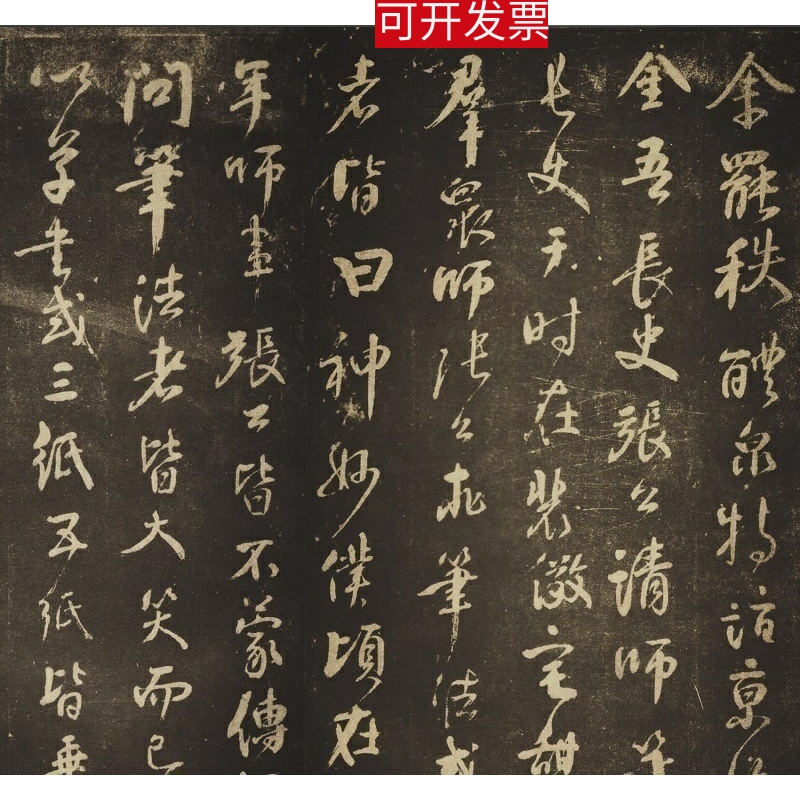 可开发票
余罷秩醴泉特詣京
金吾長史張公請師筆
長史于时在裴儆宅
群眾師張公求筆法或
者皆曰神妙僕頃在
年師事張公皆不蒙傳
問筆法者皆大笑而已
以草書或三紙五紙皆乘